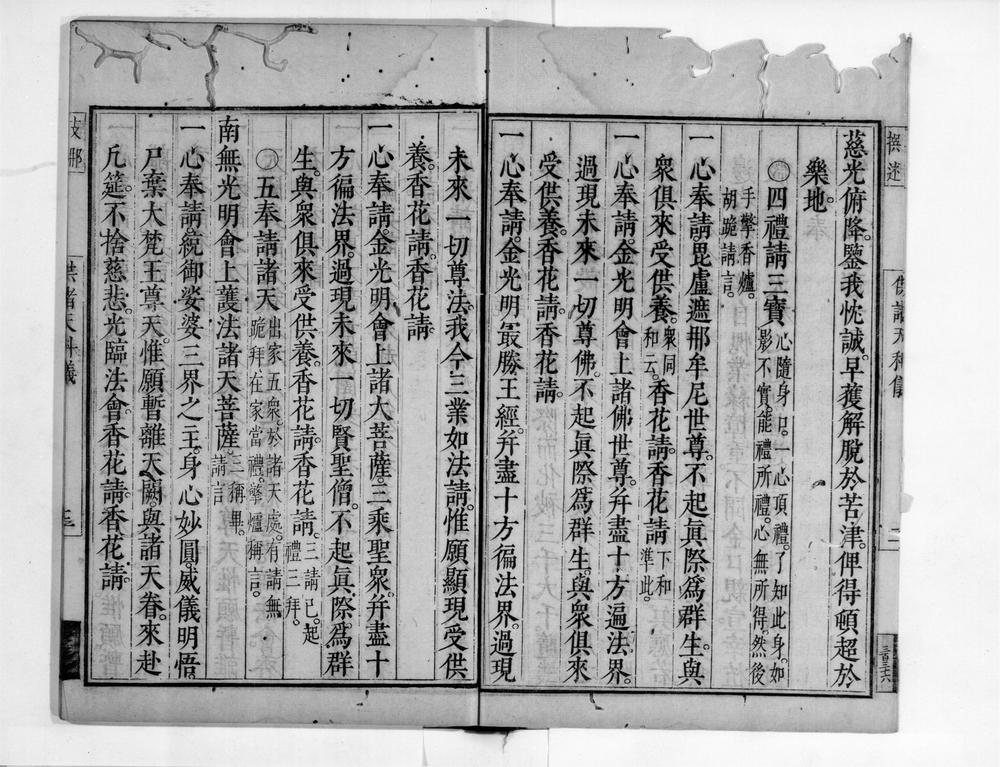 慈光俯降。鑒我忱誠。早獲解脫於苦津。俾得頓超於
樂地。
〇四禮請三寶心隨身口。一心頂禮。了知此身。如
影不實。能禮所禮。心無所得。然後
手擎香爐。
胡跪請言。
一心奉請。毘盧遮那牟尼世尊。不起眞際。爲群生。與
衆俱來。受供養。衆同
和云。香花請。香花請下和
準此。
一心奉請。金光明會上諸佛世尊。幷盡十方遍法界。
過現未來一切尊佛。不起眞際。爲群生。與衆俱來
受供養。香花請。香花請。
一心奉請。金光明最勝王經。幷盡十方徧法界。過現
未來一切尊法。我今三業如法請。惟願顯現受供
養。香花請。香花請。
一心奉請。金光明會上諸大菩薩。三乘聖衆。幷盡十
方徧法界。過現未來一切賢聖僧。不起眞際。爲群
生。與衆俱來。受供養。香花請。香花請。三請已。起
禮三拜。
〇五奉請諸天出家五衆。於諸天處。有請無
跪拜。在家當禮。擎爐稱言。
南無光明會上護法諸天菩薩。三稱畢。
請言
一心奉請。統御娑婆三界之主。身心妙圓。威儀明悟。
尸棄大梵王尊天。惟願暫離天闕。與諸天眷。來赴
凡筵。不捨慈悲。光臨法會。香花請。香花請。
一
供諸天科儀
三百三十六